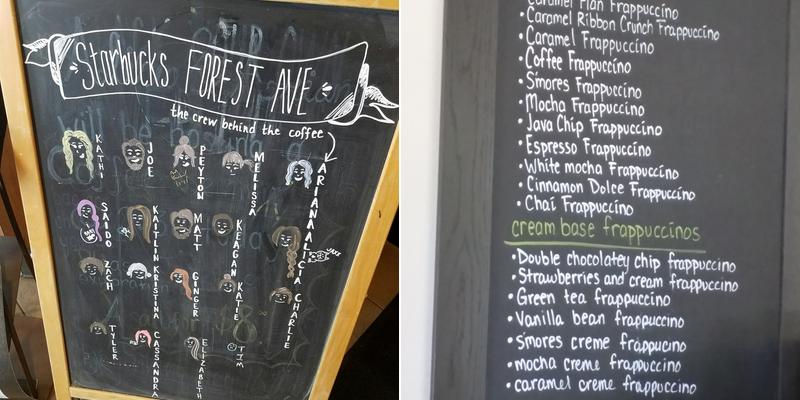 Starbucks FOREST AVE
the crew behind the coffee
KATHI
JOE
PEYTON
MELISSA
ARIANA
SAIDO
KAITLIN
MATT
KEAGAN
ALICIA
ZACH
KRISTINA
GINGER
KATIE
CHARLIE
TYLER
CASSANDRA
ELIZABETH
TIM
Caramel Flan Frappuccino
• Caramel Ribbon Crunch Frappuccino
• Caramel Frappuccino
• Coffee Frappuccino
• S'mores Frappuccino
• Mocha Frappuccino
• Java Chip Frappuccino
• Espresso Frappuccino
• White mocha Frappuccino
• Cinnamon Dolce Frappuccino
• Chai Frappuccino
cream base frappuccinos
• Double chocolatey chip frappuccino
• Strawberries and cream frappuccino
• Green tea frappuccino
• Vanilla bean frappuccino
• S'mores creme frappuccino
• mocha creme frappuccino
• caramel creme frappuccino